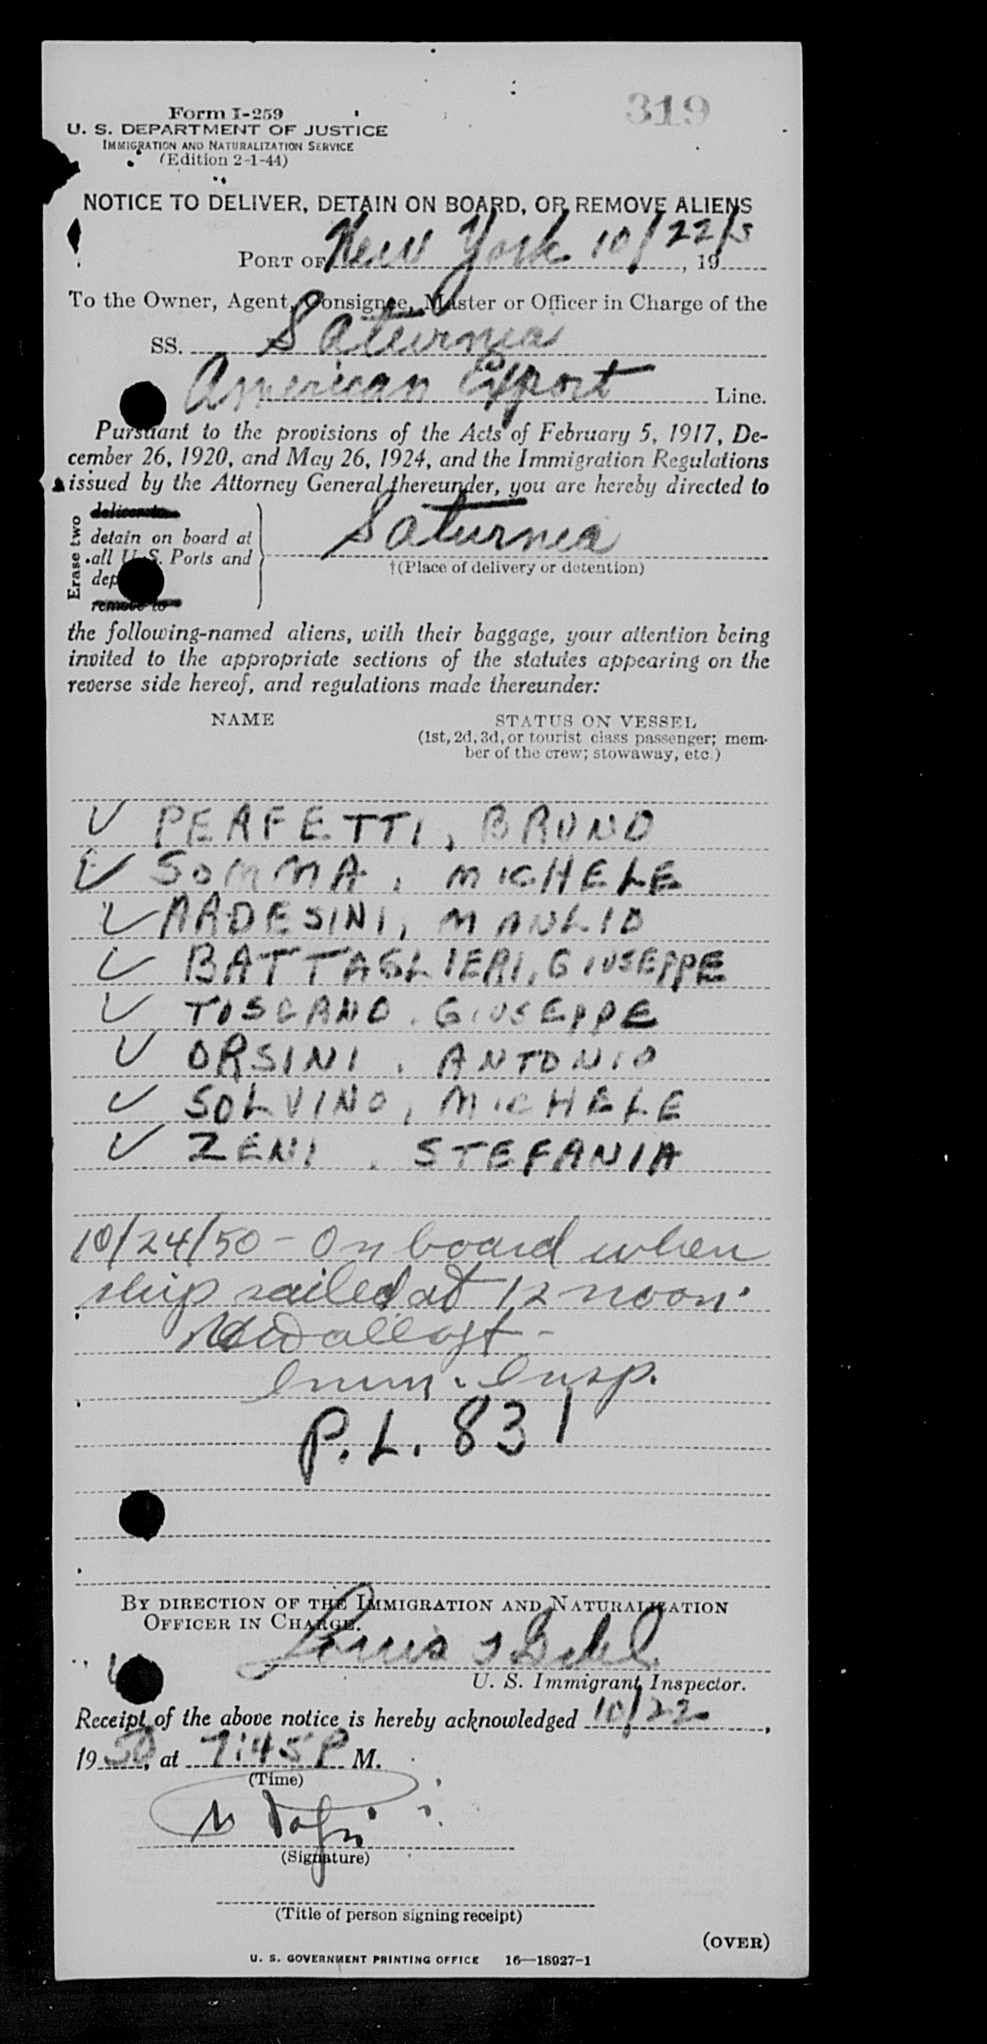 319
Form I-259
U. S. DEPARTMENT OF JUSTICE
IMMIGRATION AND NATURALIZATION SERVICE
(Edition 2-1-44)
NOTICE TO DELIVER, DETAIN ON BOARD, OR REMOVE ALIENS
PORT OF New York 10/22/5, 19
To the Owner, Agent, Consignee, Master or Officer in Charge of the
SS. Saturnia
American Export Line.
Pursuant to the provisions of the Acts of February 5, 1917, De-
cember 26, 1920, and May 26, 1924, and the Immigration Regulations
issued by the Attorney General thereunder, you are hereby directed to
Erase two
deliver to
detain on board at
all U.S. Ports and
dep
remove to
Saturnia
†(Place of delivery or detention)
the following-named aliens, with their baggage, your attention being
invited to the appropriate sections of the statutes appearing on the
reverse side hereof, and regulations made thereunder:
NAME STATUS ON VESSEL
(1st, 2d, 3d, or tourist class passenger; mem-
ber of the crew; stowaway, etc.)
✓ PERFETTI, BRUNO
✓ SOMMA, MICHELE
✓ ARDESINI, MANLIO
✓ BATTAGLIERI, GIUSEPPE
✓ TOSCANO, GIUSEPPE
✓ ORSINI, ANTONIO
✓ SOLVINO, MICHELE
✓ ZENI, STEFANIA
10/24/50 - On board when
ship sailed at 12 noon.
Imm. Insp.
P.L. 831
BY DIRECTION OF THE IMMIGRATION AND NATURALIZATION
OFFICER IN CHARGE.
Louis
U. S. Immigrant Inspector.
Receipt of the above notice is hereby acknowledged 10/22,
1950, at 7:45 P M.
(Time)
(Signature)
(Title of person signing receipt)
(OVER)
U. S. GOVERNMENT PRINTING OFFICE 16—18927-1